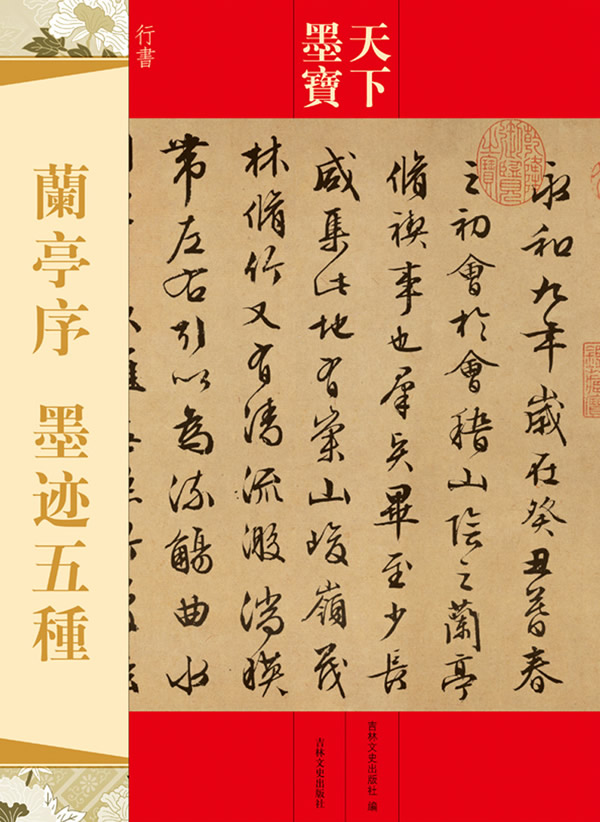 行書
天下
墨寶
蘭亭序 墨迹五種
永和九年歲在癸丑暮春
之初會於會稽山陰之蘭亭
脩禊事也羣賢畢至少長
咸集此地有崇山峻嶺茂
林脩竹又有清流激湍暎
帶左右引以為流觴曲水
乾隆御覽之寶
吉林文史出版社 編
吉林文史出版社